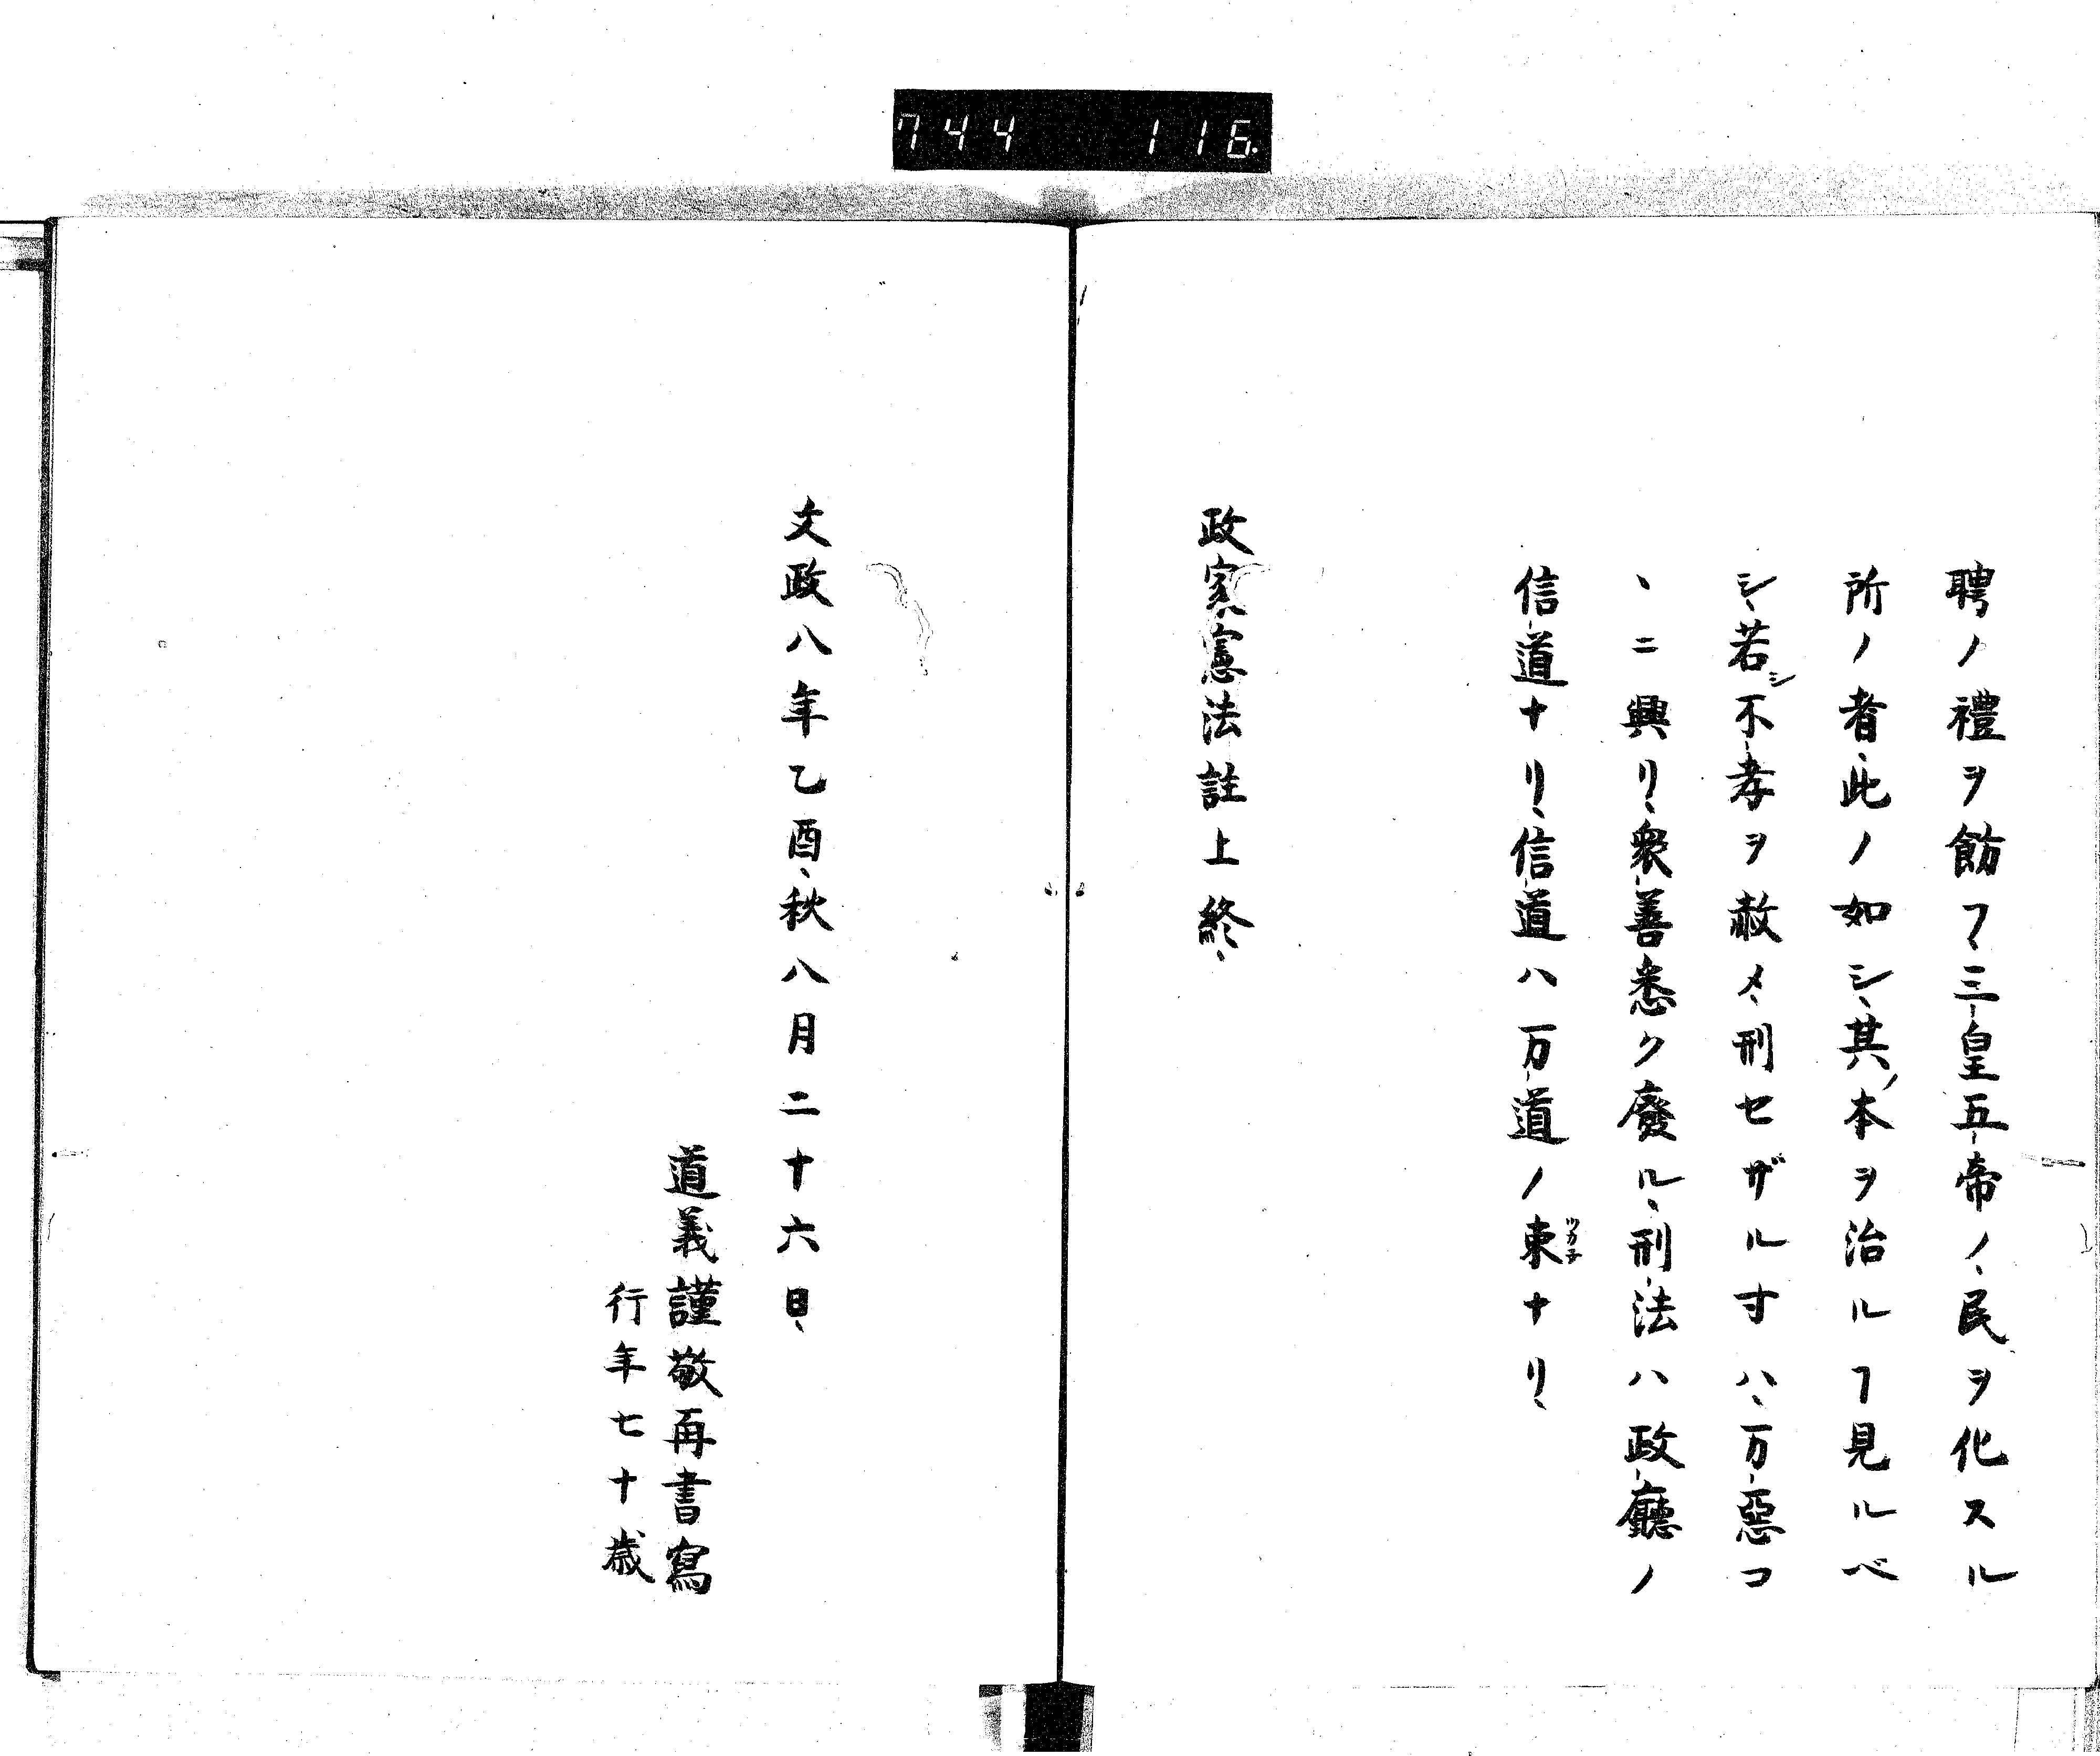 744 116.
聘ノ禮ヲ餝フ、三皇五帝ノ、民ヲ化スル
所ノ者、此ノ如シ、其ノ本ヲ治ルヿ見ルベ
シ、若シ不孝ヲ赦メ、刑セザル寸ハ、万惡コ
、ニ興リ、衆善悉ク廢ル、刑法ハ政廳ノ
信道ナリ、信道ハ万道ノ束ツカ子ナリ、
政家憲法註上終、
文政八年乙酉、秋八月二十六日、
道義謹敬再書寫
行年七十歳